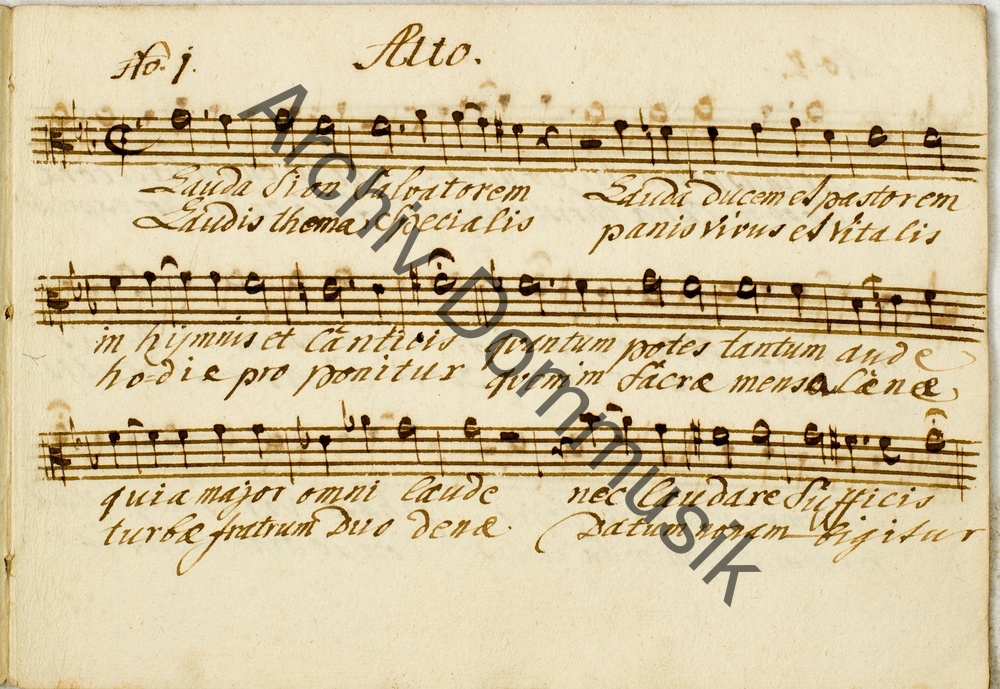 No. 1.
Alto.
Lauda Sion Salvatorem Lauda ducem et pastorem
Laudis thema specialis panis vivus et vitalis
in hymnis et Canticis quantum potes tantum aude
ho=die pro ponitur quem in Sacræ mensa Cænæ
quia major omni laude nec laudare Sufficis
turbæ fratrum Duo denæ. Datum non am=bigitur
Archiv Dommusik